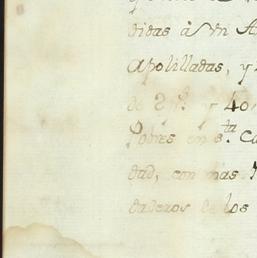 didas à Un A
apolilladas, y
de 2 y 40
Pobres en s.ta Ca
dad, con mas
daderos de los